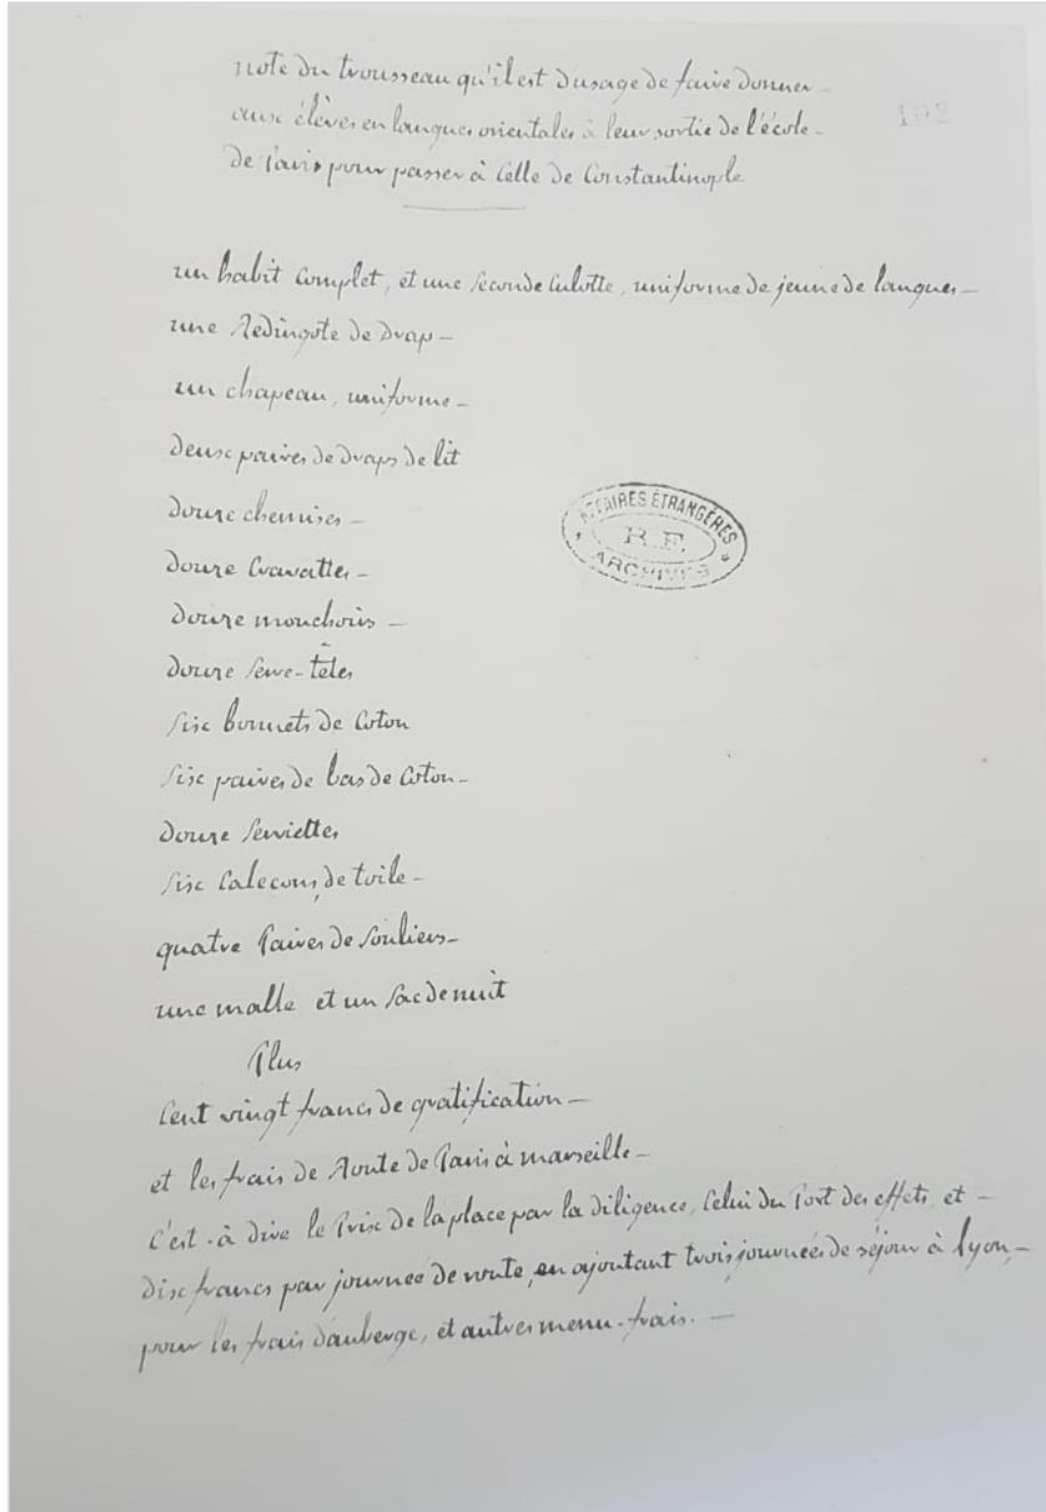 note du trousseau qu'il est d'usage de faire donner
102
aux élèves en langues orientales à leur sortie de l'école
de Paris pour passer à celle de Constantinople
un habit complet, et une seconde culotte, uniforme de jeune de langues
une Redingote de drap
un chapeau, uniforme
deux paires de draps de lit
douze chemises
AFFAIRES ÉTRANGÈRES
R.F.
ARCHIVES
douze Cravattes
douze mouchoirs
douze Serre-têtes
Six bonnets de Coton
Six paires de bas de Coton
douze Serviettes
Six Caleçons, de toile
quatre Paires de Souliers
une malle et un Sac de nuit
Plus
Cent vingt francs de gratification
et les frais de Route de Paris à marseille
C'est-à dire le Prix de la place par la diligence, Celui du Port des effets, et
dix francs par journée de route, en ajoutant trois journées de séjour à lyon,
pour les frais d'auberge, et autres menu-frais.